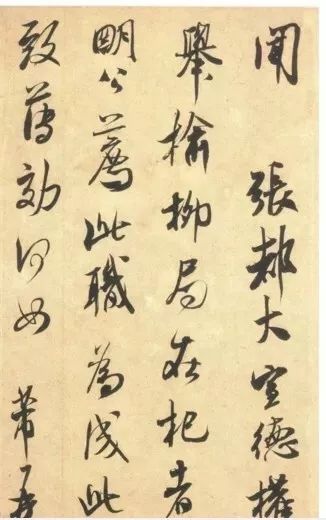 聞 張都大宣德權
舉榆柳局在杞者
明公薦此職為成此
致薄効何如 芾再